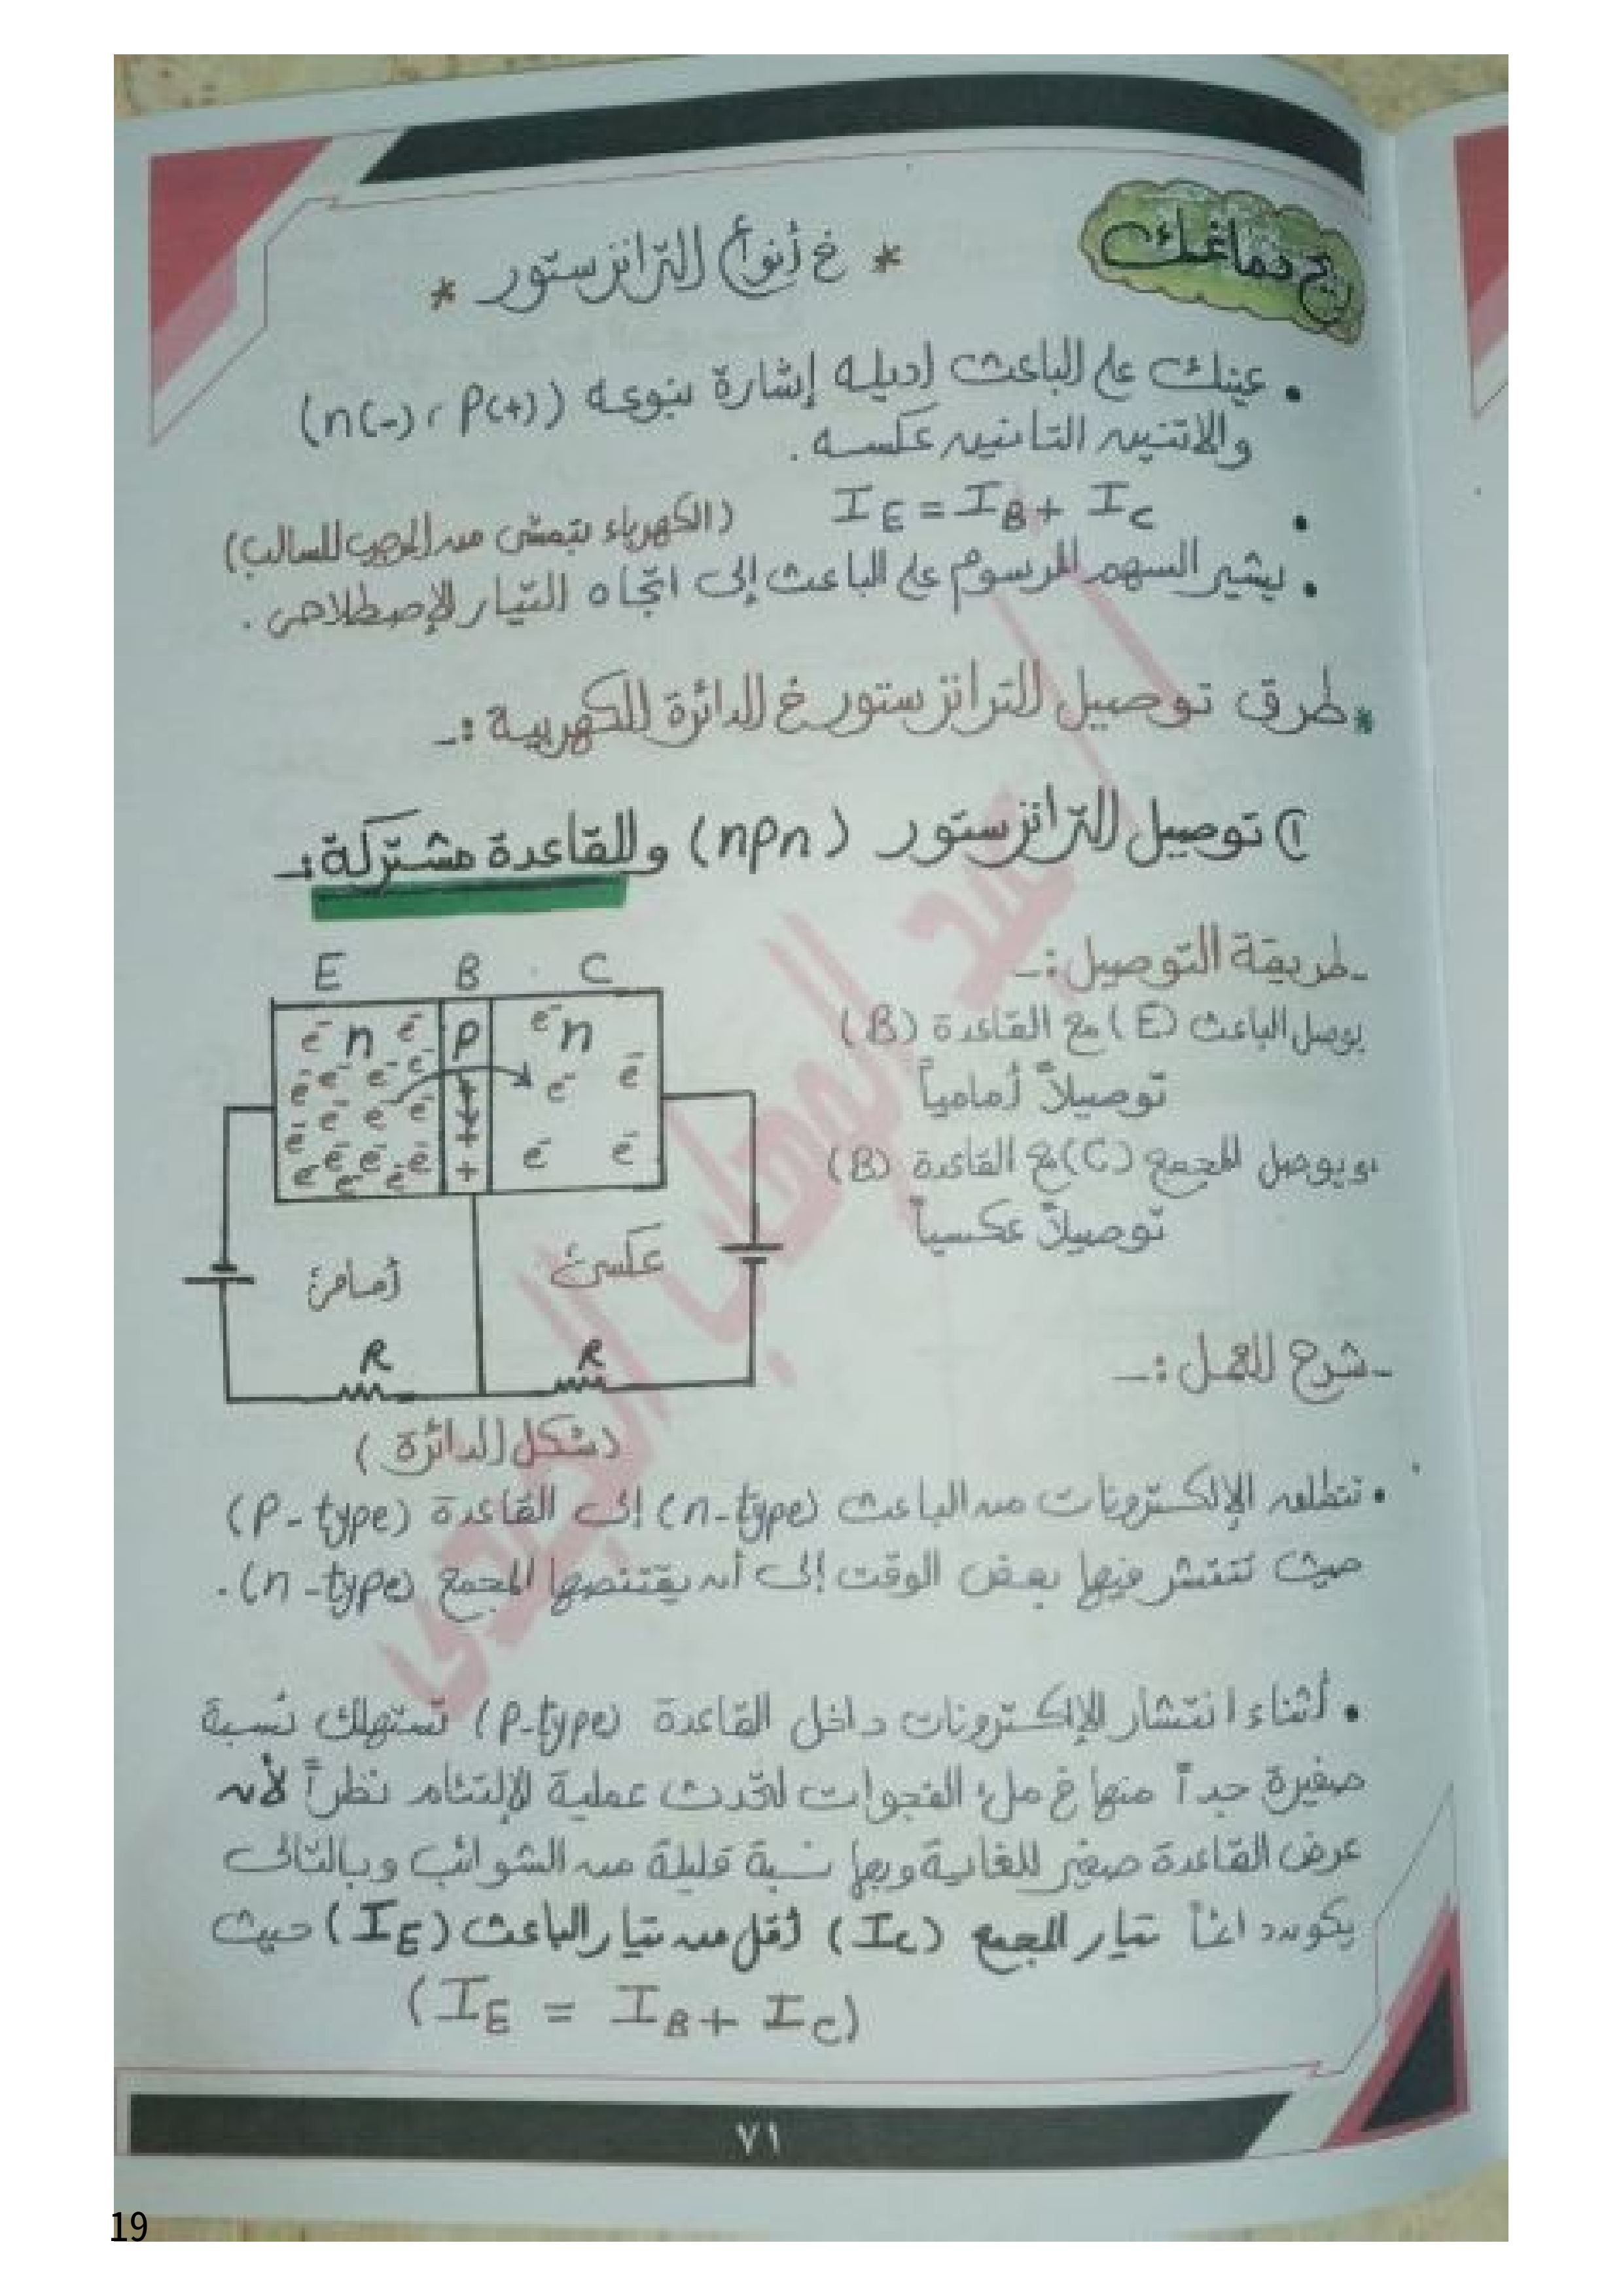 ريح دماغك
* في أنواع الترانزستور *
• عينك على الباعث إديله إشارة بنوعه (n(-) ، p(+))
والاتنين التانيين عكسه .
• I_E = I_B + I_C (الكهرباء بتمشى من الموجب للسالب)
• يشير السهم المرسوم على الباعث إلى اتجاه التيار الإصطلاحى .
* طرق توصيل الترانزستور في الدائرة الكهربية :-
① توصيل الترانزستور (npn) والقاعدة مشتركة :-
- طريقة التوصيل :-
يوصل الباعث (E) مع القاعدة (B)
توصيلاً أمامياً
ويوصل المجمع (C) مع القاعدة (B)
توصيلاً عكسياً
E B C
n p n
e⁻ e⁻ e⁻
e⁻ e⁻ e⁻ e⁻ + e⁻ e⁻
e⁻ e⁻ e⁻ e⁻ +
e⁻ e⁻ e⁻ e⁻ + e⁻ e⁻
e⁻ e⁻ e⁻ +
أمامى عكسى
R R
(شكل الدائرة)
- شرح العمل :-
• تنطلق الإلكترونات من الباعث (n-type) إلى القاعدة (P-type)
حيث تنتشر فيها بعض الوقت إلى أن يقتنصها المجمع (n-type) .
• أثناء انتشار الإلكترونات داخل القاعدة (p-type) تستهلك نسبة
صغيرة جداً منها في ملئ الفجوات لتحدث عملية الإلتئام نظراً لأن
عرض القاعدة صغير للغاية وبها نسبة قليلة من الشوائب وبالتالى
يكون دائماً تيار المجمع (I_C) أقل من تيار الباعث (I_E) حيث
(I_E = I_B + I_C)
٧١
19